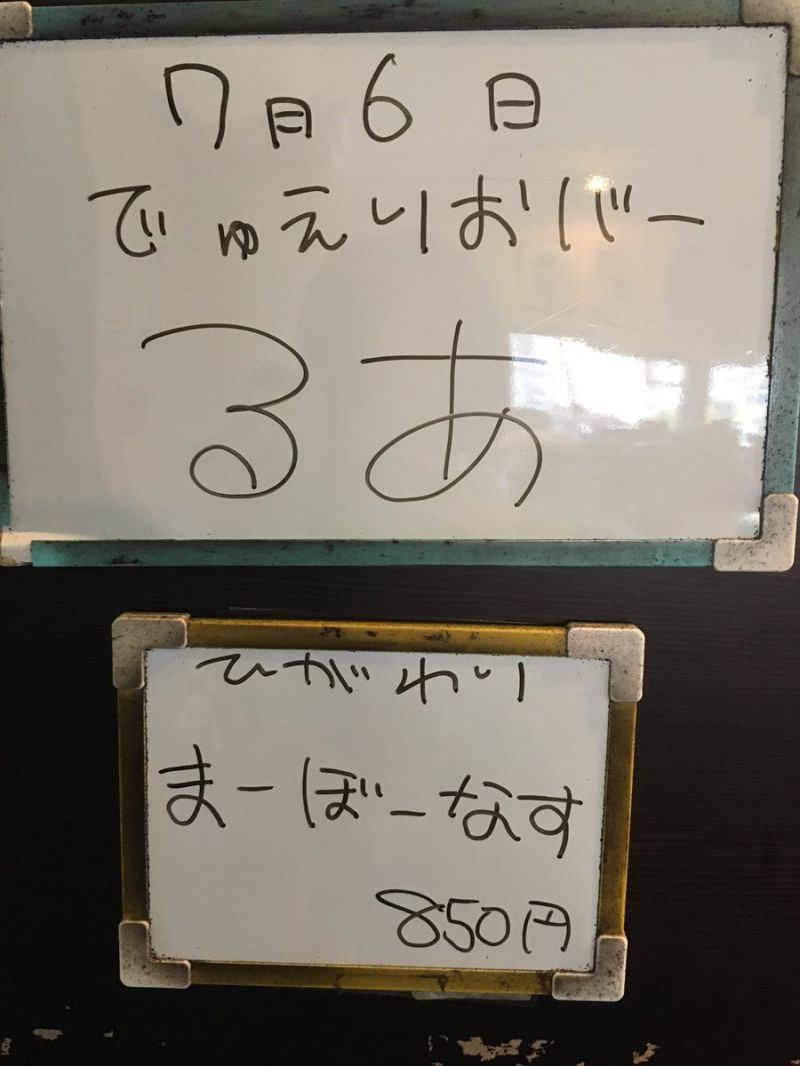 7月6日
でゅえりおバー
るあ
ひがわり
まーぼーなす
850円